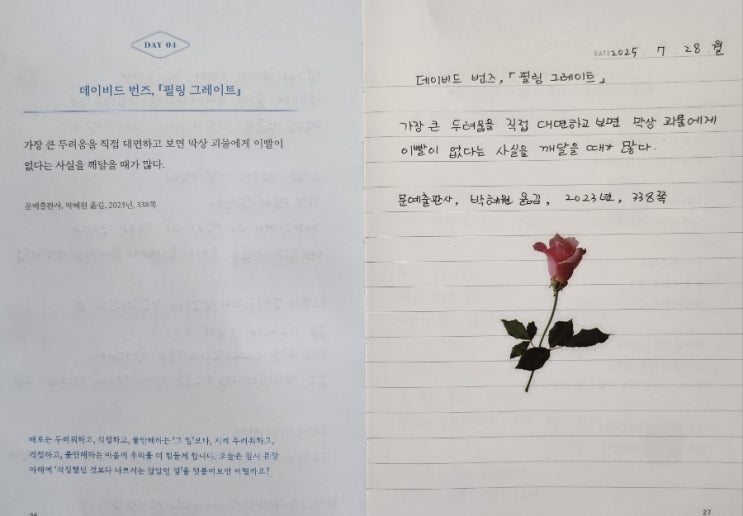 DAY 04
데이비드 번즈, 「필링 그레이트」
가장 큰 두려움을 직접 대면하고 보면 막상 괴물에게 이빨이
없다는 사실을 깨달을 때가 많다.
문예출판사, 박혜원 옮김, 2023년, 338쪽
때로는 두려워하고, 걱정하고, 불안해하는 '그 일'보다, 사실 두려워하고,
걱정하고, 불안해하는 마음이 우리를 더 힘들게 합니다. 오늘은 필사 문장
아래에 '걱정했던 것보다 나쁘지는 않았던 일'을 덧붙여보면 어떨까요?
26
DATE 2025. 7. 28 월
데이비드 번즈, 「필링 그레이트」
가장 큰 두려움을 직접 대면하고 보면 막상 괴물에게
이빨이 없다는 사실을 깨달을 때가 많다.
문예출판사, 박혜원 옮김, 2023년, 338쪽
27